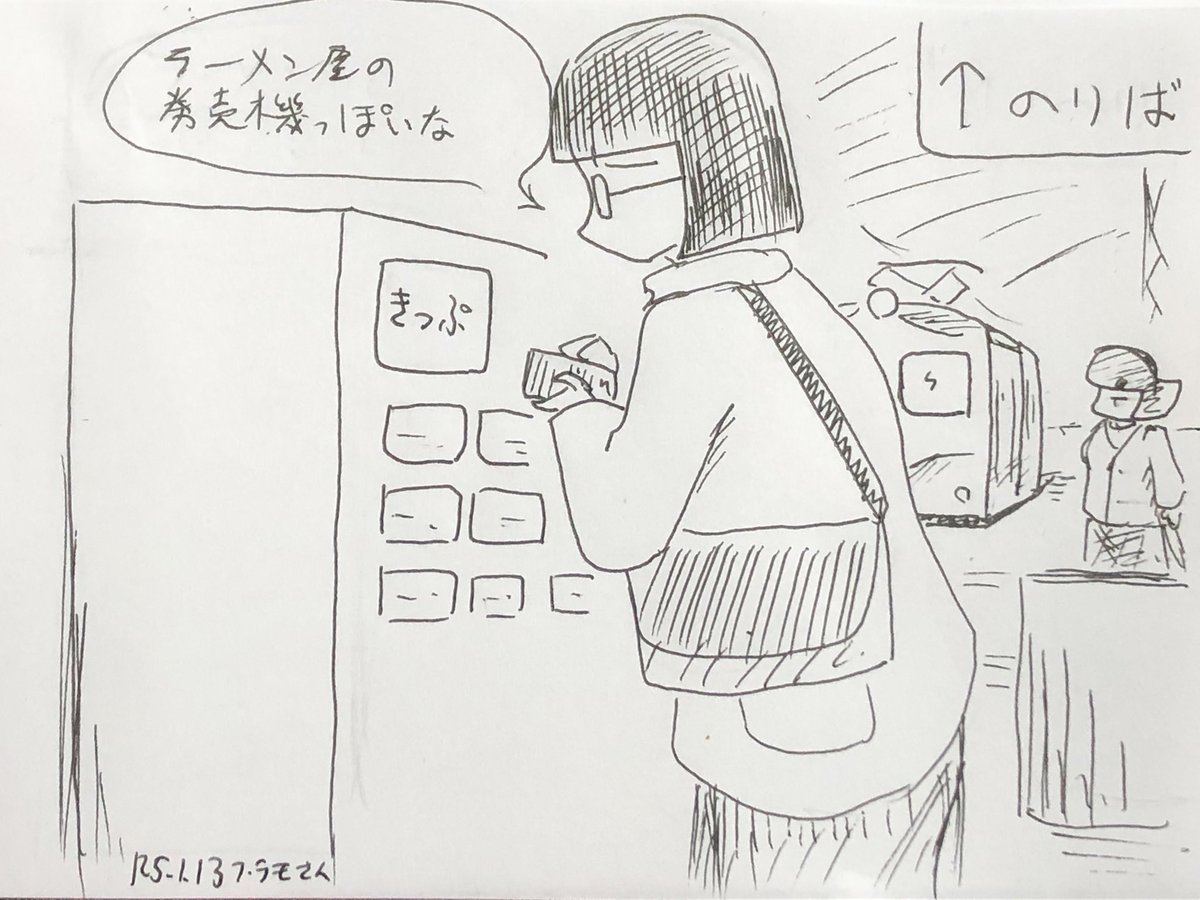 ラーメン屋の
発売機っぽいな
↑のりば
きっぷ
R5.1.13 フ・ラモさん